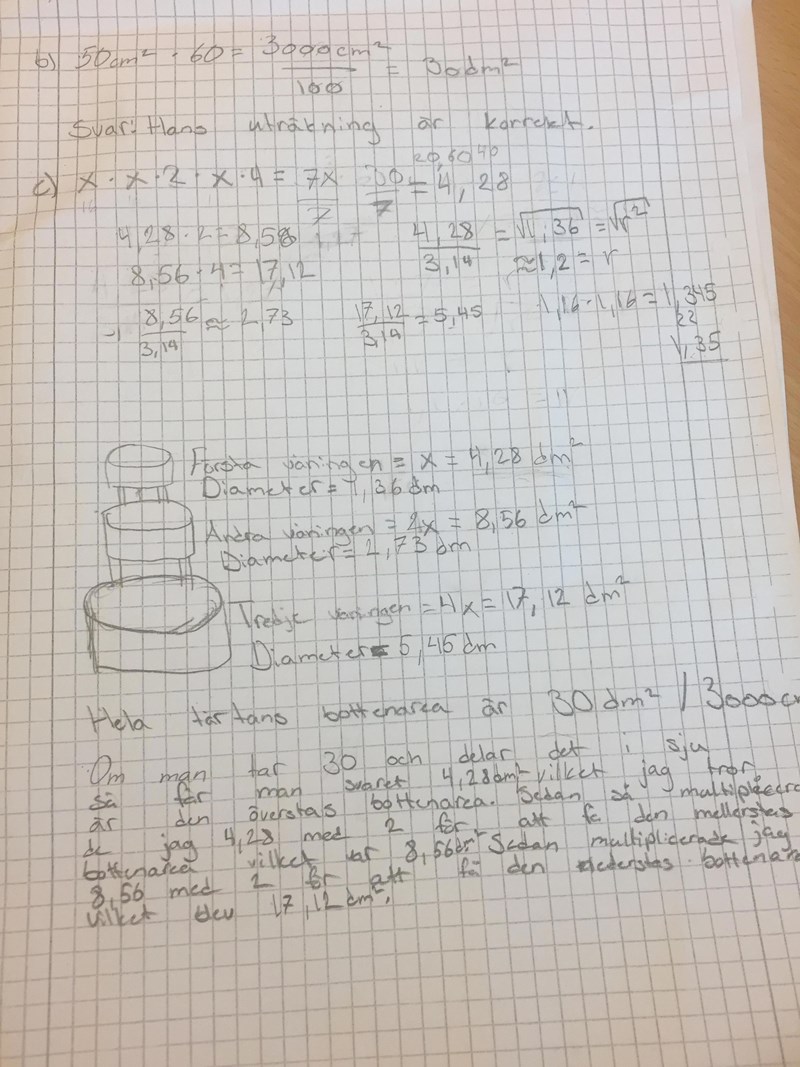 b) 50cm² · 60 = 3000cm² / 100 = 30dm²
Svar: Hans uträkning är korrekt.
c) x · x · 2 + x · 4 = 7x / 7 30 / 7 = 4,28
4,28 · 2 = 8,56 4,28 / 3,14 = √1,36 = √r²
8,56 + 4 = 17,12 ≈ 1,2 = r
8,56 / 3,14 ≈ 2,73 17,12 / 3,14 = 5,45 1,16 · 1,16 = 1,345
1,35
Första våningen = x = 4,28 dm²
Diameter = 1,36 dm
Andra våningen = 2x = 8,56 dm²
Diameter = 2,73 dm
Tredje våningen = 4x = 17,12 dm²
Diameter = 5,45 dm
Hela tårtans bottenarea är 30 dm² / 3000c
Om man tar 30 och delar det i sju
så får man svaret 4,28dm² vilket jag tror
är den överstas bottenarea. Sedan så multiplicera
de jag 4,28 med 2 för att få den mellerstas
bottenarea vilket var 8,56 Sedan multiplicerade jag
8,56 med 2 för att få den nederstas bottenar
vilket blev 17,12 dm².